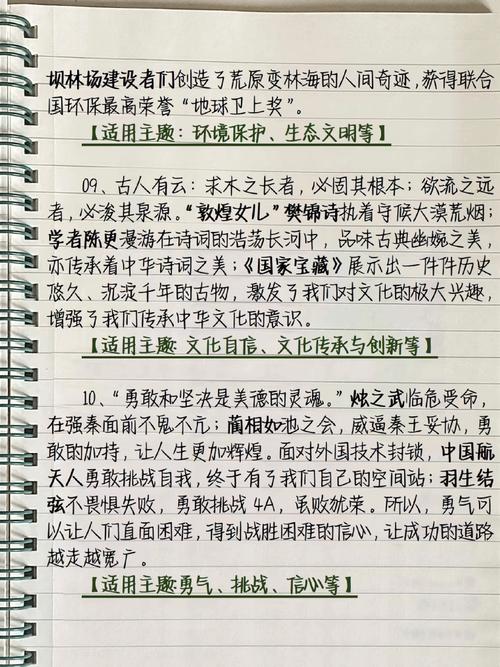 坝林场建设者们创造了荒原变林海的人间奇迹,获得联合
国环保最高荣誉“地球卫上奖”。
【适用主题:环境保护、生态文明等】
09、古人有云:求木之长者,必固其根本;欲流之远
者,必浚其泉源。“敦煌女儿”樊锦诗执着守候大漠荒烟;
学者陈更漫游在诗词的浩荡长河中,品味古典幽婉之美,
亦传承着中华诗词之美;《国家宝藏》展示出一件件历史
悠久、沉淀千年的古物,激发了我们对文化的极大兴趣,
增强了我们传承中华文化的意识。
【适用主题:文化自信、文化传承与创新等】
10、“勇敢和坚决是美德的灵魂。”烛之武临危受命,
在强秦面前不鬼不亢;蔺相如池之会,威逼秦王妥协,勇
敢的加持,让人生更加辉煌。面对外国技术封锁,中国航
天人勇敢挑战自我,终于有了我们自己的空间站;羽生结
弦不畏惧失败,勇敢挑战4A,虽败犹荣。所以,勇气可
以让人们直面困难,得到战胜困难的信心,让成功的道路
越走越宽广。
【适用主题勇气、挑战、信心等】